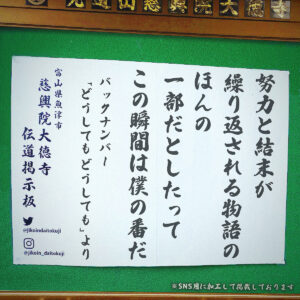 努力と結末が
繰り返される物語の
ほんの
一部だとしたって
この瞬間は僕の番だ
バックナンバー
「どうしてもどうしても」より
富山県魚津市
慈興院大徳寺
伝道掲示板
@jikoindaitokuji
@jikoin_daitokuji
※SNS用に加工して掲載しております